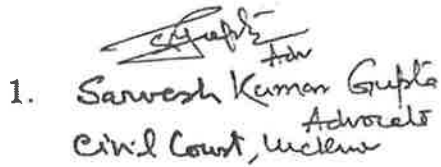 SGupta
Adv
1. Sarvesh Kumar Gupta
Advocate
Civil Court, Lucknow